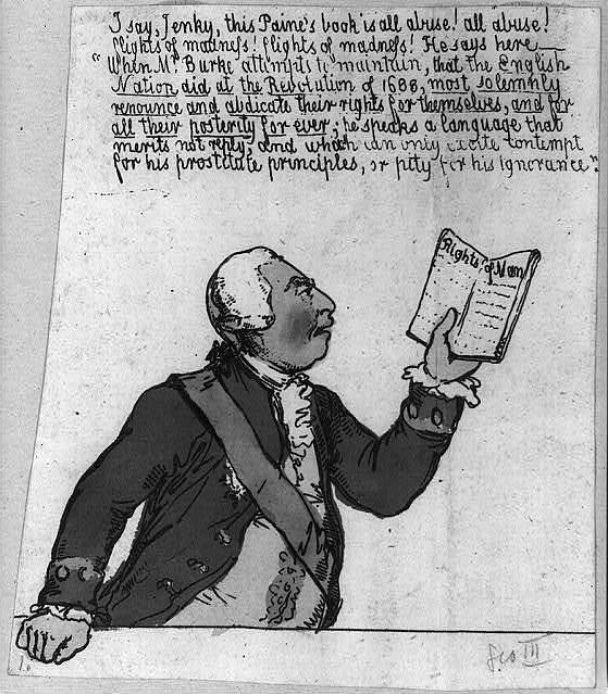 I say, Jenky, this Paine's book is all abuse! all abuse!
flights of madness! flights of madness! He says here—
"When Mr. Burke attempts to maintain, that the English
Nation did at the Revolution of 1688, most solemnly
renounce and abdicate their rights for themselves, and for
all their posterity for ever; he speaks a language that
merits not reply, and which can only excite contempt
for his prostitute principles, or pity for his ignorance".
Rights of Man
Geo III
1.